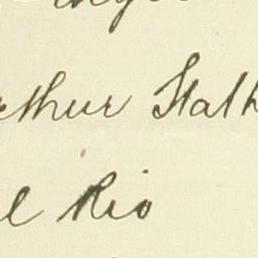 rthur Stath
el Rio